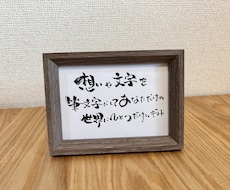 想いや文字を
筆文字にしてあなただけの
世界に一つだけのギフト